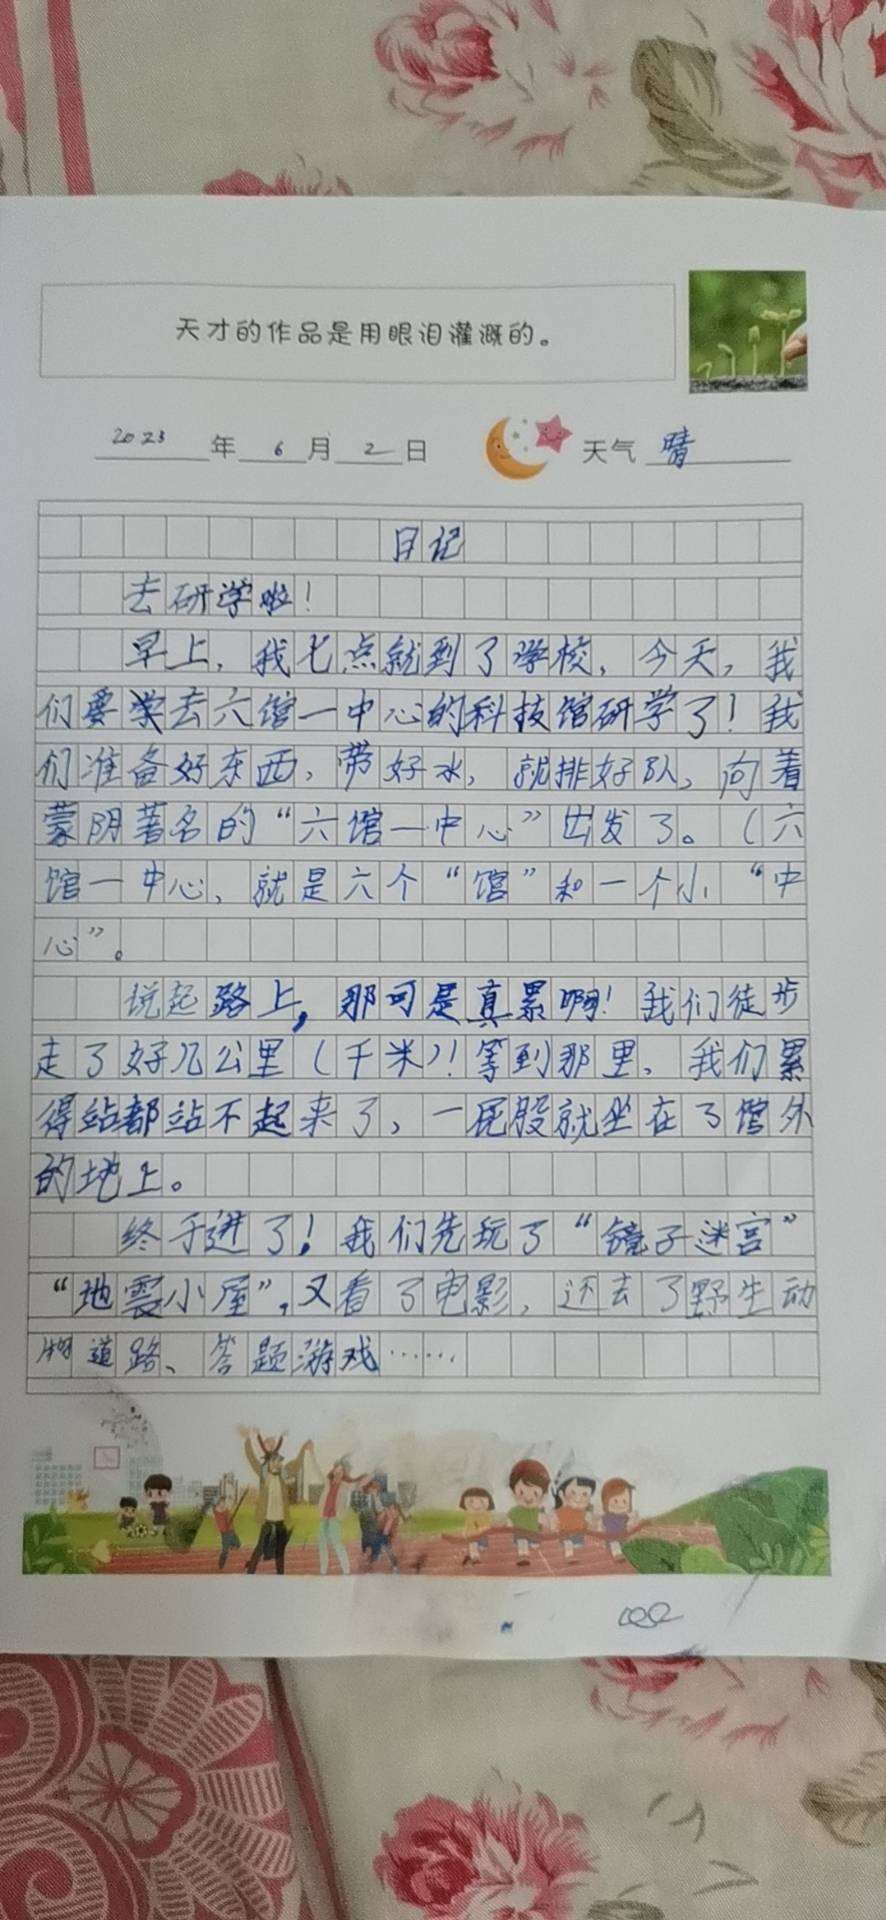 天才的作品是用眼泪灌溉的。
2023年6月2日 天气 晴
日记
去研学啦！
早上，我七点就到了学校，今天，我
们要去六馆一中心的科技馆研学了！我
们准备好东西，带好水，就排好队，向着
蒙阴著名的“六馆一中心”出发了。（六
馆一中心，就是六个“馆”和一个小“中
心”。
说起路上，那可是真累啊！我们徒步
走了好几公里（千米）！等到那里，我们累
得站都站不起来了，一屁股就坐在了馆外
的地上。
终于进了！我们先玩了“镜子迷宫”
“地震小屋”，又看了电影，还去了野生动
物道路、答题游戏……